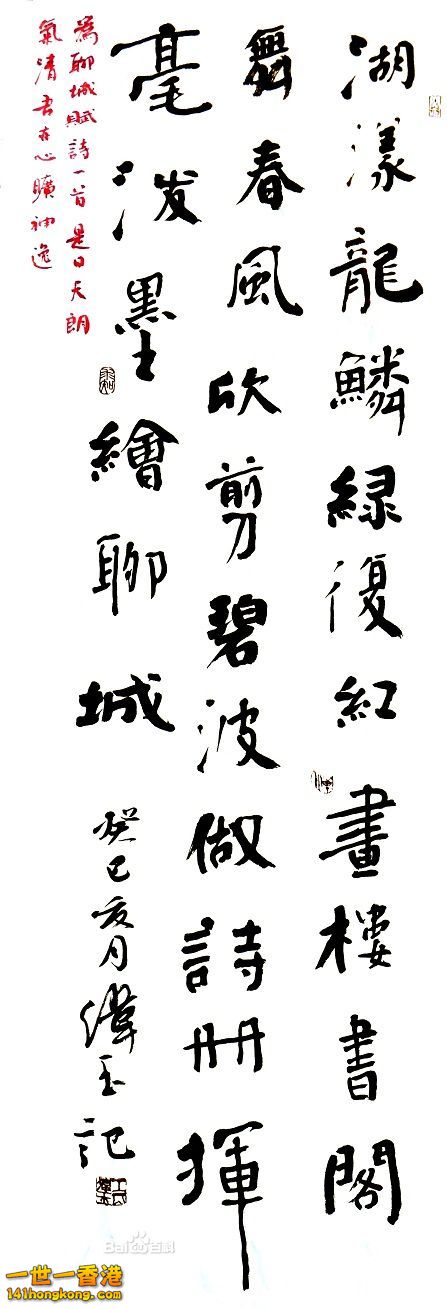 湖漾龍鱗綠復紅畫樓書閣
舞春風欣剪碧波做詩冊揮
毫潑墨繪聊城
癸巳亥月瑋玉記
為聊城賦詩一首是日天朗
氣清吾在心曠神逸
Bai百科
一世一香港
141hongkong.com